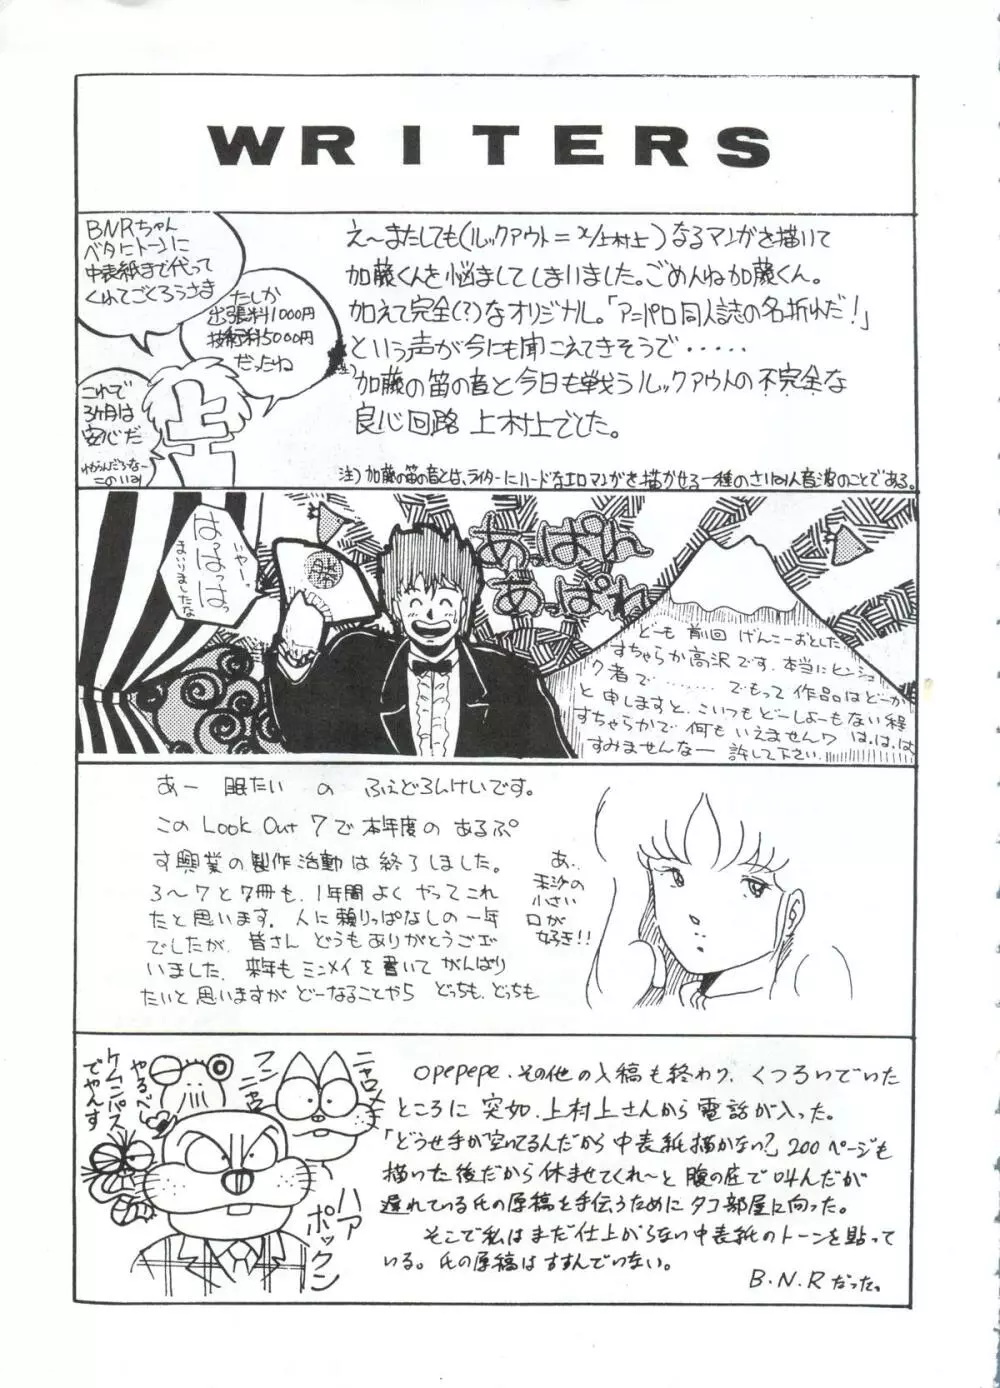 WRITERS
BNRちゃん
ベタにトーンに
中表紙まで代って
くれてごくろうさま
たしか
出張料1000円
技術料5000円
だったね
これで
3ヶ月は
安心だ
わからんだろなー
このいみ
上
え〜またしても(ルックアウト=x/上村上)なるマンガを描いて
加藤くんを悩ましてしまいました。ごめんね加藤くん。
加えて完全(?)なオリジナル。「アニパロ同人誌の名折れだ!」
という声が今にも聞こえてきそうで・・・・・
注)加藤の笛の音と今日も戦うルックアウトの不完全な
良心回路 上村上でした。
注)加藤の笛の音とは、ライターにハードなエロマンガを描かせる一種のさいみん音波のことである。
いやー、
はっはっはっ
まいりましたな
祭
あっぱれ
あっぱれ
どーも 前回 げんこーおとした
すちゃらか高沢です。本当にヒンシュ
ク者で‥‥‥‥ でもって 作品はどーか
と申しますと、こいつもどーしょーもない程
すちゃらかで 何も いえませんワ は、は、は
すみませんなー 許して下さい
あー 眠たい の ふぇどろんけいです。
この Look Out 7 で 本年度の あるぷ
す興業の製作活動は 終了しました。
3〜7と7冊も、1年間 よく やってこれ
たと思います。人に頼りっぱなしの一年
でしたが、皆さん どうもありがとうござ
いました。来年も ミンメイを書いて がんばり
たいと思いますが どーなることやら どっちも、どっちも
あ、
未沙の
小さい
口が
好き!!
ケムンパス
でやんす
やるべし
フンニャロ
ニャロメ
ハァ
ポックン
opepepe、その他の入稿も終わり、くつろいでいた
ところに 突如、上村上さんから 電話が入った。
「どうせ手が空いてるんだから 中表紙描かない?」200ページも
描いた後だから休ませてくれ〜と 腹の底で叫んだが
遅れている氏の原稿を手伝うために タコ部屋に向った。
そこで私はまだ仕上がらない中表紙のトーンを貼って
いる。氏の原稿はすすんでいない。
B.N.Rだった。